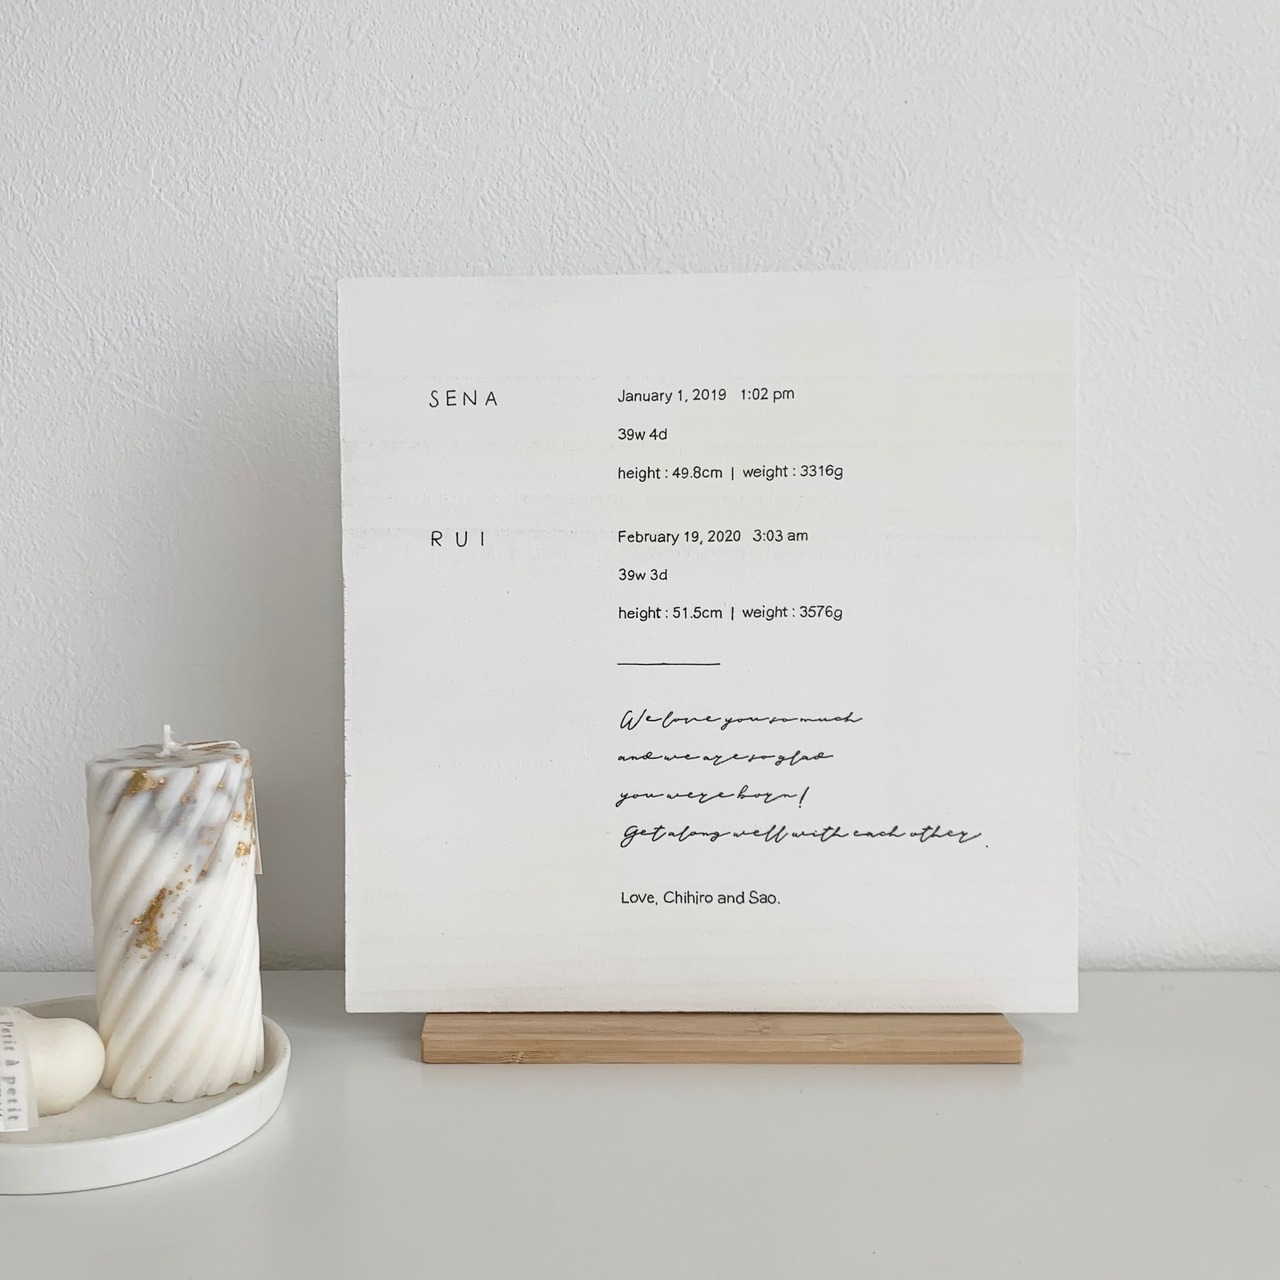 SENA
January 1, 2019 1:02 pm
39w 4d
height : 49.8cm | weight : 3316g
RUI
February 19, 2020 3:03 am
39w 3d
height : 51.5cm | weight : 3576g
We love you so much
and we are so glad
you were born!
Get along well with each other.
Love, Chihiro and Sao.
Petit à petit